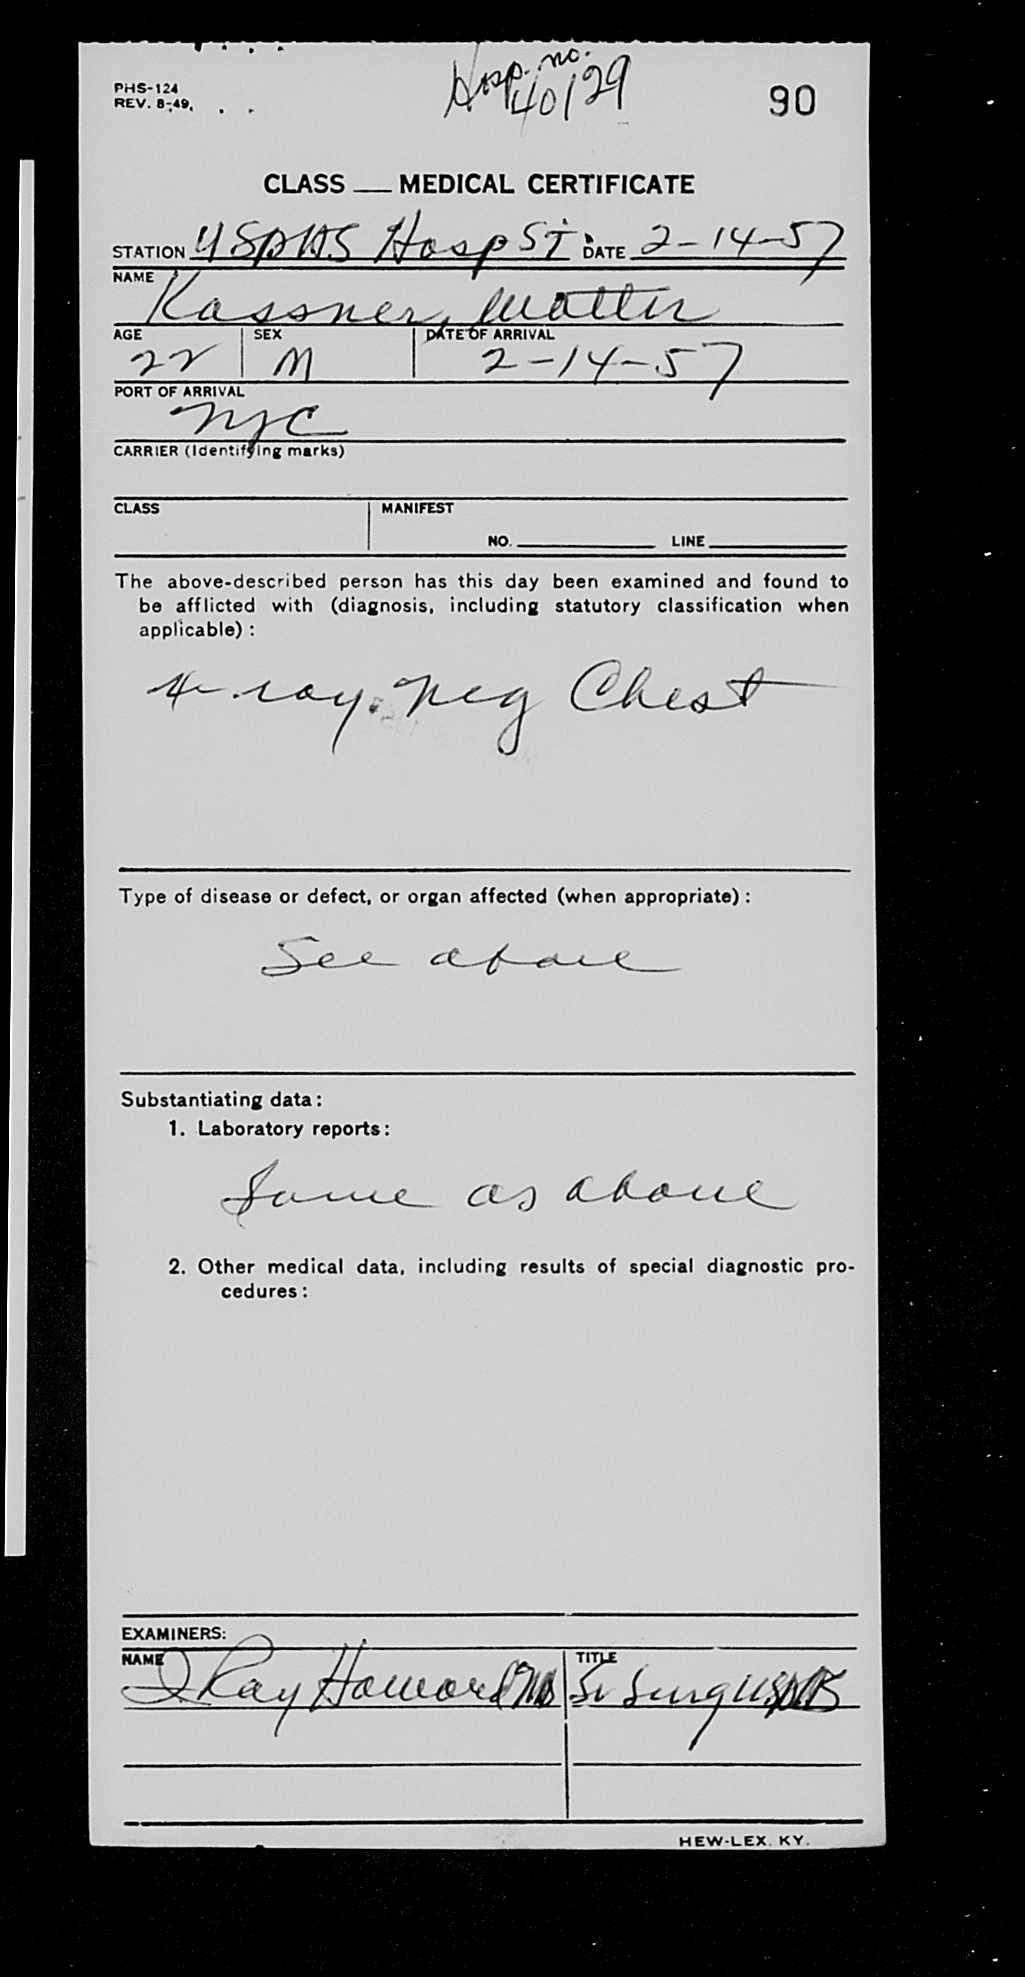 PHS-124
REV. 8-49.
Hosp. no.
40129
90
CLASS ___ MEDICAL CERTIFICATE
STATION USPHS Hosp SI DATE 2-14-57
NAME
Kassner, Walter
AGE SEX DATE OF ARRIVAL
22 M 2-14-57
PORT OF ARRIVAL
NYC
CARRIER (Identifying marks)
CLASS MANIFEST
NO. ___ LINE ___
The above-described person has this day been examined and found to
be afflicted with (diagnosis, including statutory classification when
applicable):
X-ray. Neg Chest
Type of disease or defect, or organ affected (when appropriate):
See above
Substantiating data:
1. Laboratory reports:
Same as above
2. Other medical data, including results of special diagnostic pro-
cedures:
EXAMINERS:
NAME TITLE
Ray Howard MD Sr Surg USPHS
HEW-LEX. KY.